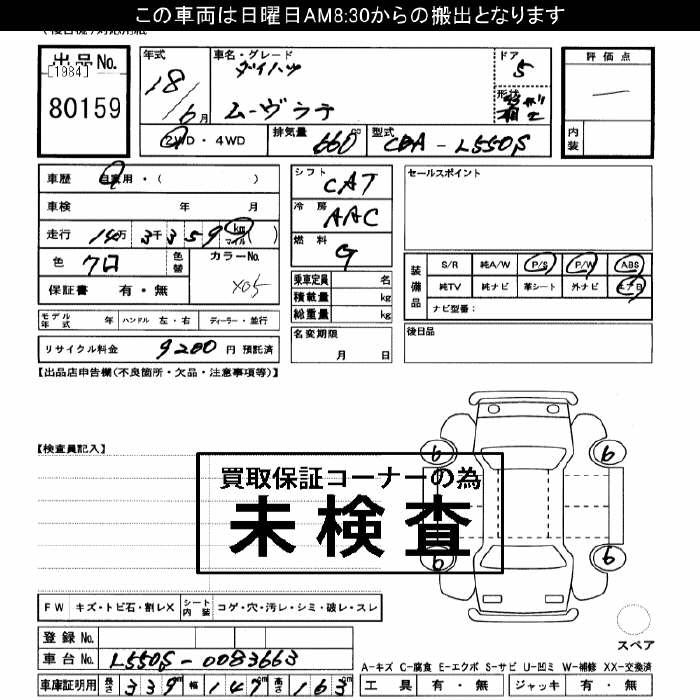 この車両は日曜日AM8:30からの搬出となります
出品No.
[1984]
80159
年式
18/6月
車名・グレード
ダイハツ
ムーヴラテ
ドア
5
形状
評価点
内装
2WD・4WD
排気量
660cc
型式
CBA-L550S
車歴
自家用・( )
車検 年 月
走行 14万3千359 km マイル ( )
色 クロ
色替
カラーNo.
X05
保証書 有・無
シフト
CAT
冷房
AAC
燃料
G
乗車定員 名
積載量 kg
総重量 kg
セールスポイント
装備品
S/R 純A/W P/S P/W ABS
純TV 純ナビ 革シート 外ナビ エアB
ナビ型番:
モデル年式 年 ハンドル 左・右 ディーラー・並行
リサイクル料金 9200 円 預託済
名変期限
月 日
後日品
【出品店申告欄(不良箇所・欠品・注意事項等)】
【検査員記入】
買取保証コーナーの為
未検査
6
6
6
6
スペア
FW キズ・トビ石・割レX シート内装 コゲ・穴・汚レ・シミ・破レ・スレ
登録No.
車台No. L550S-0083663
車庫証明用 長さ 339cm 幅 147cm 高さ 163cm
A-キズ C-腐食 E-エクボ S-サビ U-凹ミ W-補修 XX-交換済
工具 有・無 ジャッキ 有・無